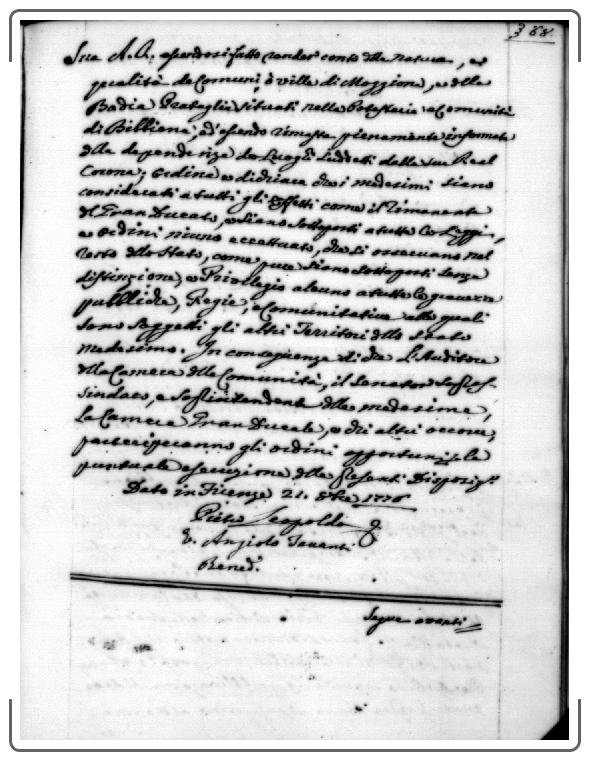 388.
Sua A. R. essendosi fatto render conto della natura, e
qualità de Comuni, o ville di Moggiona, e della
Badia Prataglia situati nella Potesteria e Comunità
di Bibbiena; ed essendo rimasta pienamente informata
della dependenza de Luoghi suddetti dalla sua Real
Corona; Ordina e dichiara che i medesimi siano
considerati a tutti gli effetti come il rimanente
del Gran Ducato, e siano sottoposti a tutte le Leggi,
e ordini niuno eccettuato, che si osservano nel
resto dello Stato, come pure siano sottoposti senza
distinzione, e Privilegio alcuno a tutte le gravezze
pubbliche, Regie, e Comunitative alle quali
sono soggetti gli altri Territori dello Stato
medesimo. In conseguenza di che L'Auditore
della Camera delle Comunità, il Senator
Sindaco, e Soprintendente delle medesime,
la Camera Granducale, e chi altri occorre,
parteciperanno gli ordini opportuni per la
puntuale esecuzione delle presenti Disposiz.ni
Dato in Firenze 21. 8bre 1776
Pietro Leopoldo
V. Angiolo Tavanti
Segue avanti